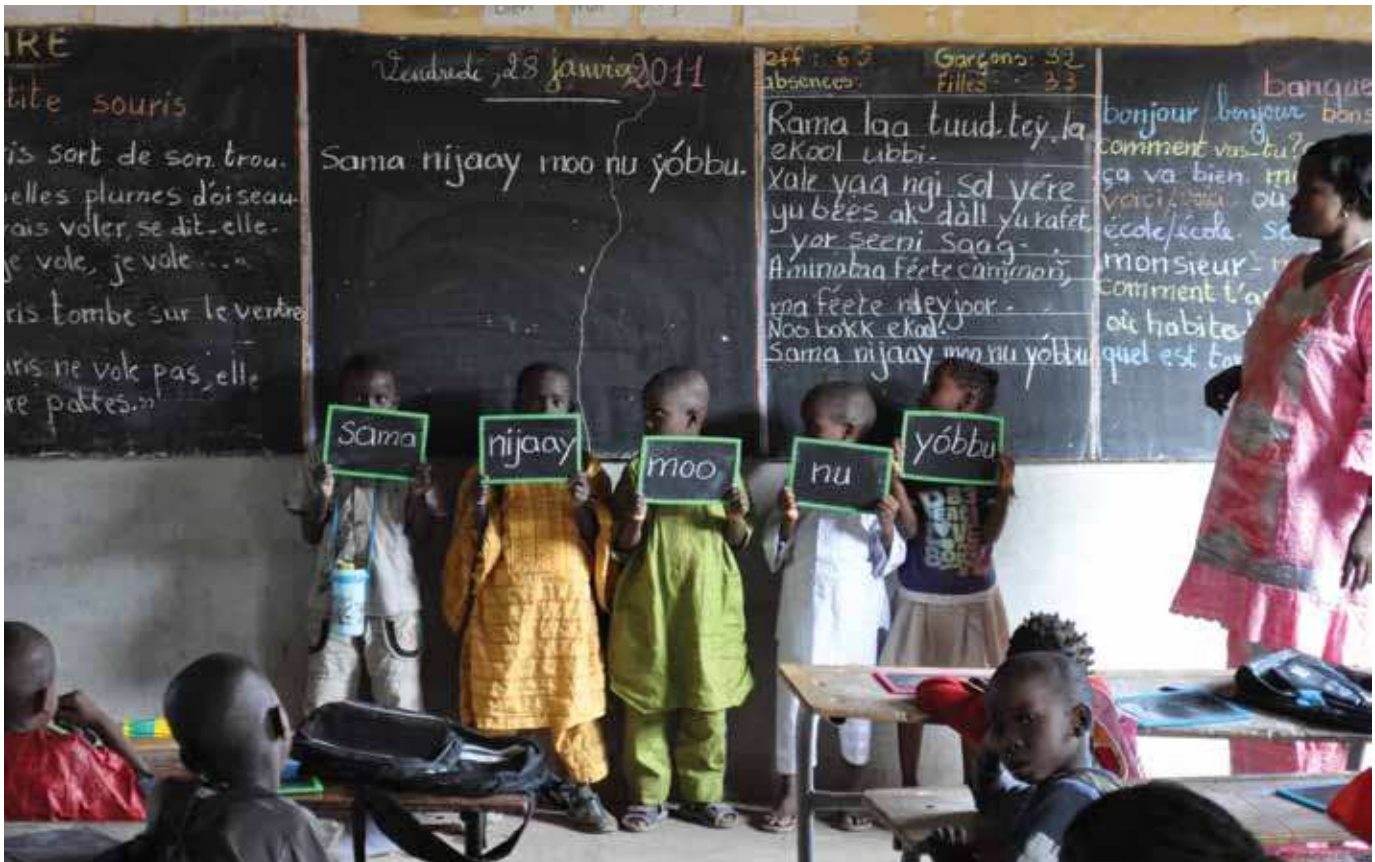 IRE
tite souris
is sort de son trou.
elles plumes d'oiseau.
rais voler, se dit-elle.
je vole, je vole ...."
ris tombe sur le ventre
uris ne vole pas, elle
re pattes.»
Vendredi, 28 janvier 2011
Sama nijaay moo nu yóbbu.
eff : 65 Garçons: 32
absences: Filles: 33
Rama laa tuud. tey, la
ekool ubbi.
Xale yaa ngi sol yére
yu bees ak dàll yu rafet,
yor seeni saag.
Aminataa féete càmmoñ,
ma féete ndeyjoor.
Noo bokk ekool.
Sama nijaay moo nu yóbbu
banque
bonjour/bonjour bons
comment vas-tu?
ça va bien.
voici
ou
école/école.
monsieur -
comment t'a
où habites-
quel est to
sama
nijaay
moo
nu
yóbbu